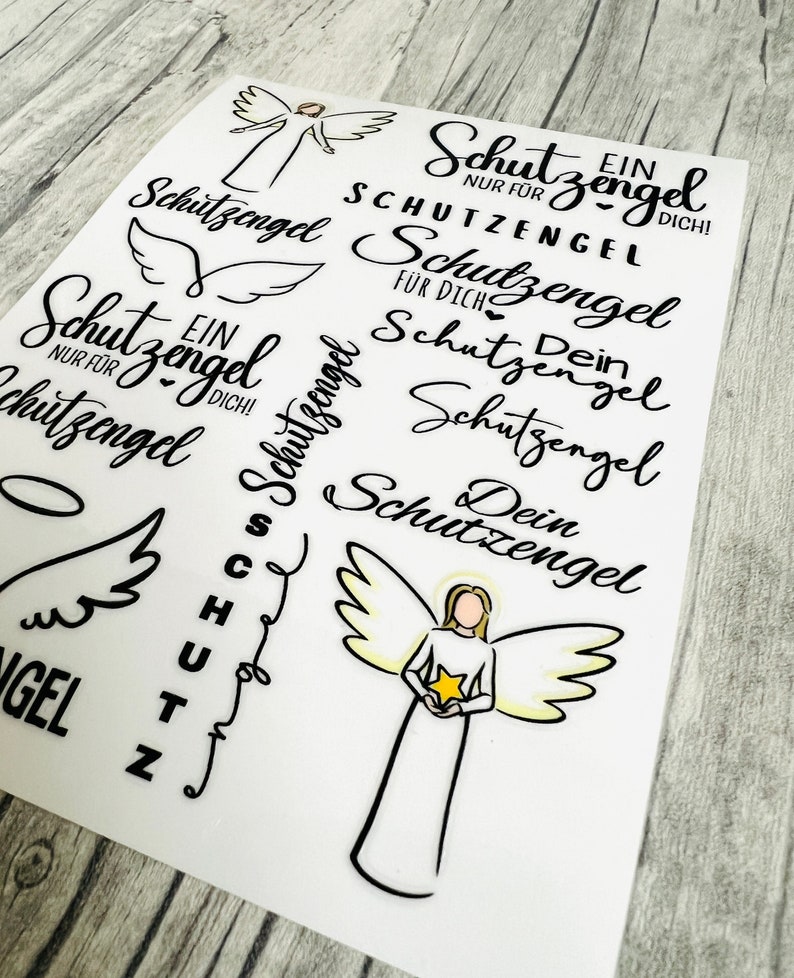 EIN
Schutzengel
NUR FÜR
DICH!
SCHUTZENGEL
Schutzengel
Schutzengel
FÜR DICH
EIN
Schutzengel
NUR FÜR
DICH!
Dein
Schutzengel
Schutzengel
Schutzengel
Schutzengel
Dein
Schutzengel
SCHUTZ
engel
NGEL